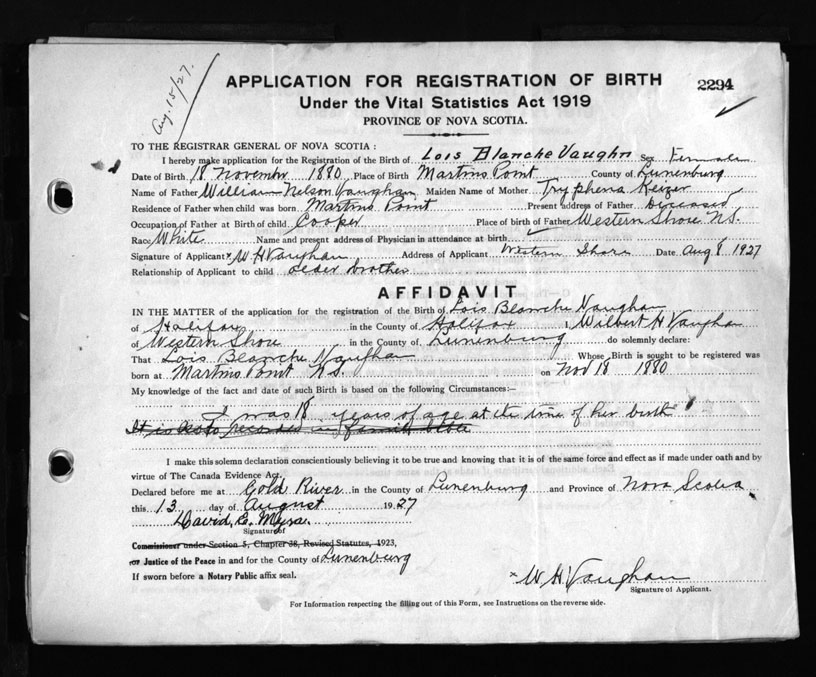 Aug. 15/27.
APPLICATION FOR REGISTRATION OF BIRTH
2294
Under the Vital Statistics Act 1919
PROVINCE OF NOVA SCOTIA.
TO THE REGISTRAR GENERAL OF NOVA SCOTIA :
I hereby make application for the Registration of the Birth of Lois Blanche Vaughn Sex Female
Date of Birth 18 November 1880 Place of Birth Martins Point County of Lunenburg
Name of Father William Nelson Vaughan Maiden Name of Mother Tryphena Keizer
Residence of Father when child was born Martins Point Present address of Father Deceased
Occupation of Father at Birth of child Cooper Place of birth of Father Western Shore N.S.
Race White Name and present address of Physician in attendance at birth
Signature of Applicant x W H Vaughan Address of Applicant Western Shore Date Aug 8 1927
Relationship of Applicant to child older brother
AFFIDAVIT
IN THE MATTER of the application for the registration of the Birth of Lois Blanche Vaughan
of Halifax in the County of Halifax I, Wilbert H Vaughan
of Western Shore in the County of Lunenburg do solemnly declare:
That Lois Blanche Vaughan Whose Birth is sought to be registered was
born at Martins Point N.S. on Nov 18 1880
My knowledge of the fact and date of such Birth is based on the following Circumstances:—
I was 18 years of age at the time of her birth
It is also recorded in family bible
I make this solemn declaration conscientiously believing it to be true and knowing that it is of the same force and effect as if made under oath and by
virtue of The Canada Evidence Act.
Declared before me at Gold River in the County of Lunenburg and Province of Nova Scotia
this 13 day of August 1927
David E. Myra
Signature of
Commissioner under Section 5, Chapter 38, Revised Statutes, 1923,
or Justice of the Peace in and for the County of Lunenburg
If sworn before a Notary Public affix seal.
x W H Vaughan
Signature of Applicant.
For Information respecting the filling out of this Form, see Instructions on the reverse side.